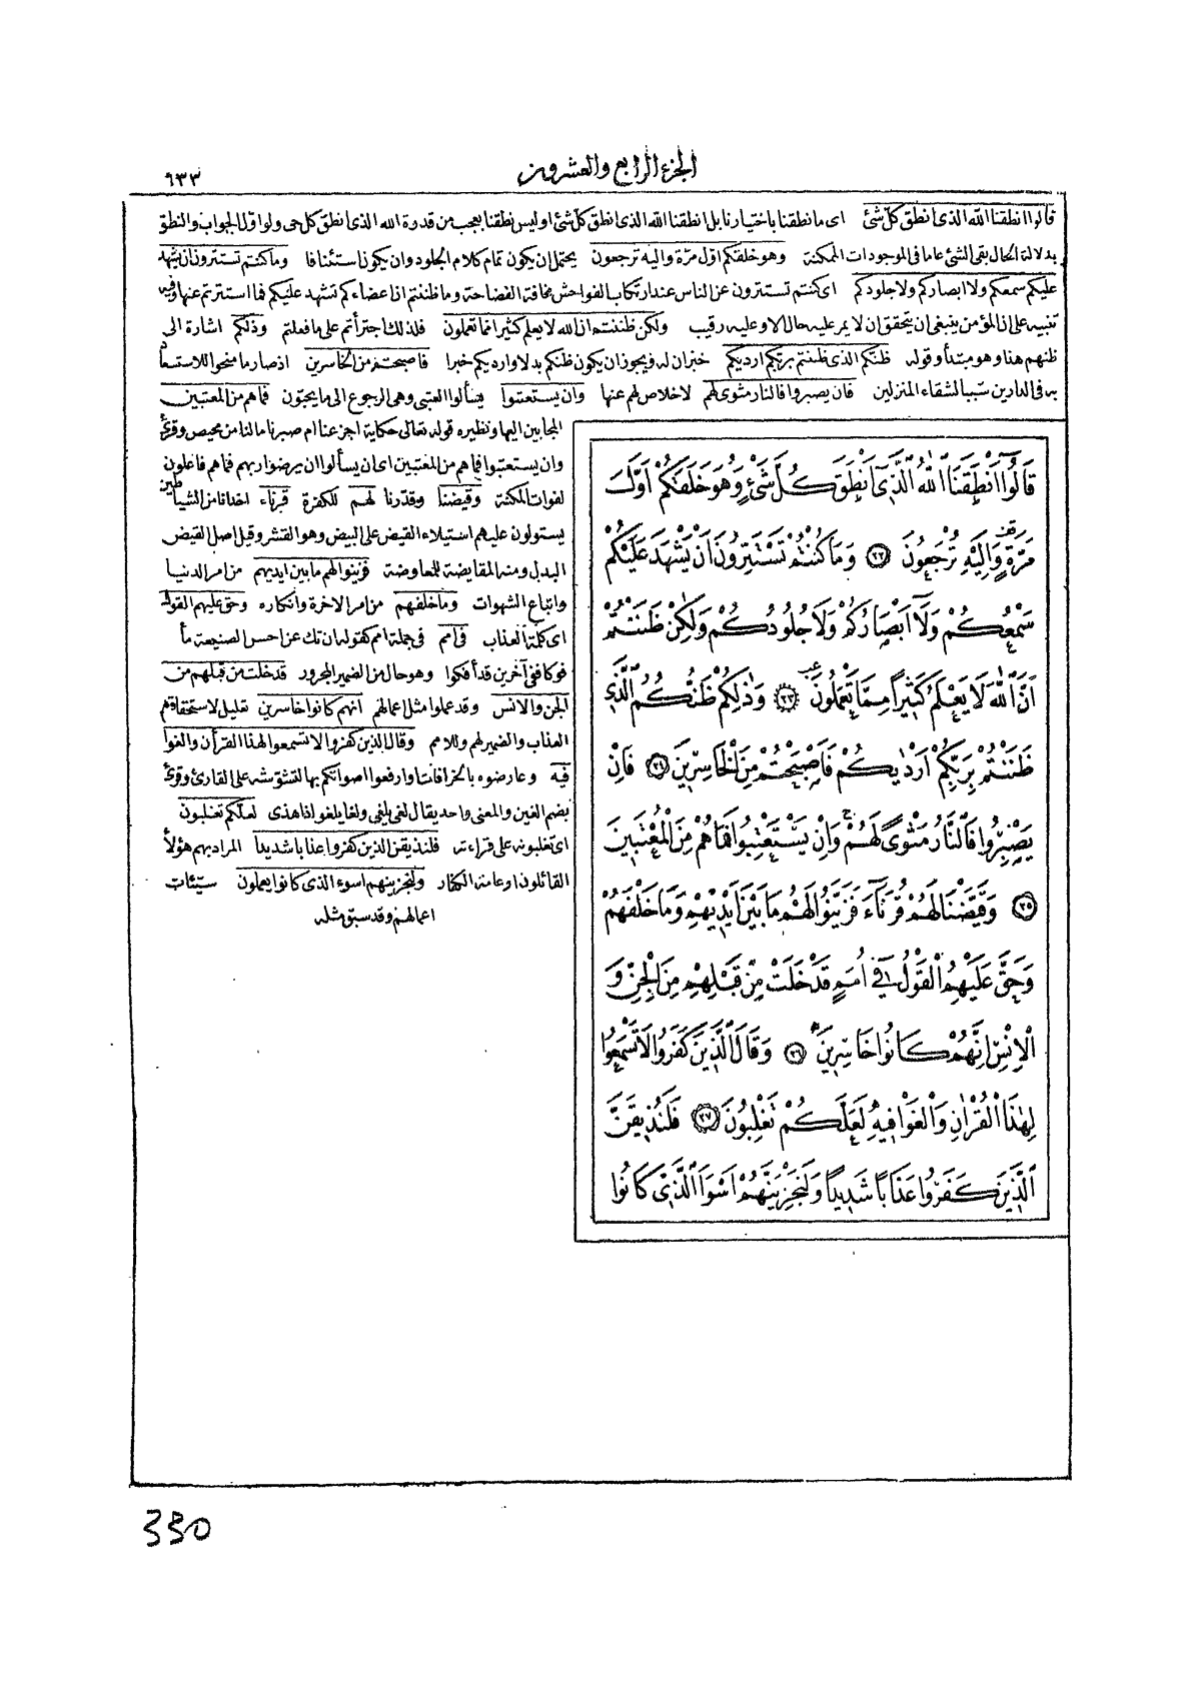 الجزء الرابع والعشرون
٦٣٣
قالوا انطقنا الله الذى انطق كل شئ اى ما نطقنا باختيارنا بل انطقنا الله الذى انطق كل شئ او ليس نطقنا بعجب من قدرة الله الذى انطق كل حى ولو اول الجواب والنطق
بدلالة الحال بقى الشئ عاما فى الموجودات الممكنة وهو خلقكم اول مرة واليه ترجعون يحتمل ان يكون تمام كلام الجلود وان يكون استئنافا وما كنتم تستترون ان يشهد
عليكم سمعكم ولا ابصاركم ولا جلودكم اى كنتم تستترون عن الناس عند ارتكاب الفواحش مخافة الفضاحة وما ظننتم ان اعضاءكم تشهد عليكم فما استترتم عنها وفيه
تنبيه على ان المؤمن ينبغى ان يتحقق ان لا يمر عليه حال الا وعليه رقيب ولكن ظننتم ان الله لا يعلم كثيرا مما تعملون فلذلك اجترأتم على ما فعلتم وذلكم اشارة الى
ظنهم هذا وهو مبتدأ وقوله ظنكم الذى ظننتم بربكم ارديكم خبران له ويجوز ان يكون ظنكم بدلا وارديكم خبرا فاصبحتم من الخاسرين اذ صار ما منحوا للاستسعاد
به فى الدارين سببا لشقاء المنزلين فان يصبروا فالنار مثوى لهم لا خلاص لهم عنها وان يستعتبوا يسألوا العتبى وهى الرجوع الى ما يحبون فما هم من المعتبين
المجابين اليها ونظيره قوله تعالى حكاية اجزعنا ام صبرنا ما لنا من محيص وقرئ
وان يستعتبوا فما هم من المعتبين اى ان يسألوا ان يرضوا ربهم فما هم فاعلون
لفوات المكنة وقيضنا وقدرنا لهم للكفرة قرناء اخدانا من الشياطين
يستولون عليهم استيلاء القيض على البيض وهو القشر وقيل اصل القيض
البدل ومنه المقايضة للمعاوضة فزينوا لهم ما بين ايديهم من امر الدنيا
واتباع الشهوات وما خلفهم من امر الاخرة وانكاره وحق عليهم القول
اى كلمة العذاب فى امم فى جملة امم كقوله ان تك عن احسن الصنيعة مأ
فوكا ففى آخرين قد أفكوا وهو حال من الضمير المجرور قد خلت من قبلهم من
الجن والانس وقد عملوا مثل اعمالهم انهم كانوا خاسرين تعليل لاستحقاقهم
العذاب والضمير لهم وللامم وقال الذين كفروا لا تسمعوا لهذا القرأن والغوا
فيه وعارضوه بالخرافات وارفعوا اصواتكم بها لتشوشه على القارئ وقرئ
بضم الغين والمعنى واحد يقال لغى يلغى ولغا يلغو اذا هذى لعلكم تغلبون
اى تغلبونه على قراءته فلنذيقن الذين كفروا عذابا شديدا المراد بهم هؤلاء
القائلون او عامة الكفار ولنجزينهم اسوء الذى كانوا يعملون سيئات
اعمالهم وقد سبق مثله
قَالُوا اَنْطَقَنَا اللّٰهُ الَّذٖى اَنْطَقَ كُلَّ شَىْءٍ وَهُوَ خَلَقَكُمْ اَوَّلَ
مَرَّةٍ وَاِلَيْهِ تُرْجَعُونَ ٢٢ وَمَا كُنْتُمْ تَسْتَتِرُونَ اَنْ يَشْهَدَ عَلَيْكُمْ
سَمْعُكُمْ وَلَا اَبْصَارُكُمْ وَلَا جُلُودُكُمْ وَلٰكِنْ ظَنَنْتُمْ
اَنَّ اللّٰهَ لَا يَعْلَمُ كَثِيرًا مِمَّا تَعْمَلُونَ ٢٣ وَذٰلِكُمْ ظَنُّكُمُ الَّذٖى
ظَنَنْتُمْ بِرَبِّكُمْ اَرْدٰيكُمْ فَاَصْبَحْتُمْ مِنَ الْخَاسِرِينَ ٢٤ فَاِنْ
يَصْبِرُوا فَالنَّارُ مَثْوًى لَهُمْ وَاِنْ يَسْتَعْتِبُوا فَمَا هُمْ مِنَ الْمُعْتَبِينَ
٢٥ وَقَيَّضْنَا لَهُمْ قُرَنَاءَ فَزَيَّنُوا لَهُمْ مَا بَيْنَ اَيْدِيهِمْ وَمَا خَلْفَهُمْ
وَحَقَّ عَلَيْهِمُ الْقَوْلُ فٖى اُمَمٍ قَدْ خَلَتْ مِنْ قَبْلِهِمْ مِنَ الْجِنِّ وَ
الْاِنْسِ اِنَّهُمْ كَانُوا خَاسِرِينَ ٢٦ وَقَالَ الَّذِينَ كَفَرُوا لَا تَسْمَعُوا
لِهٰذَا الْقُرْاٰنِ وَالْغَوْا فِيهِ لَعَلَّكُمْ تَغْلِبُونَ ٢٧ فَلَنُذِيقَنَّ
الَّذِينَ كَفَرُوا عَذَابًا شَدِيدًا وَلَنَجْزِيَنَّهُمْ اَسْوَاَ الَّذٖى كَانُوا
330